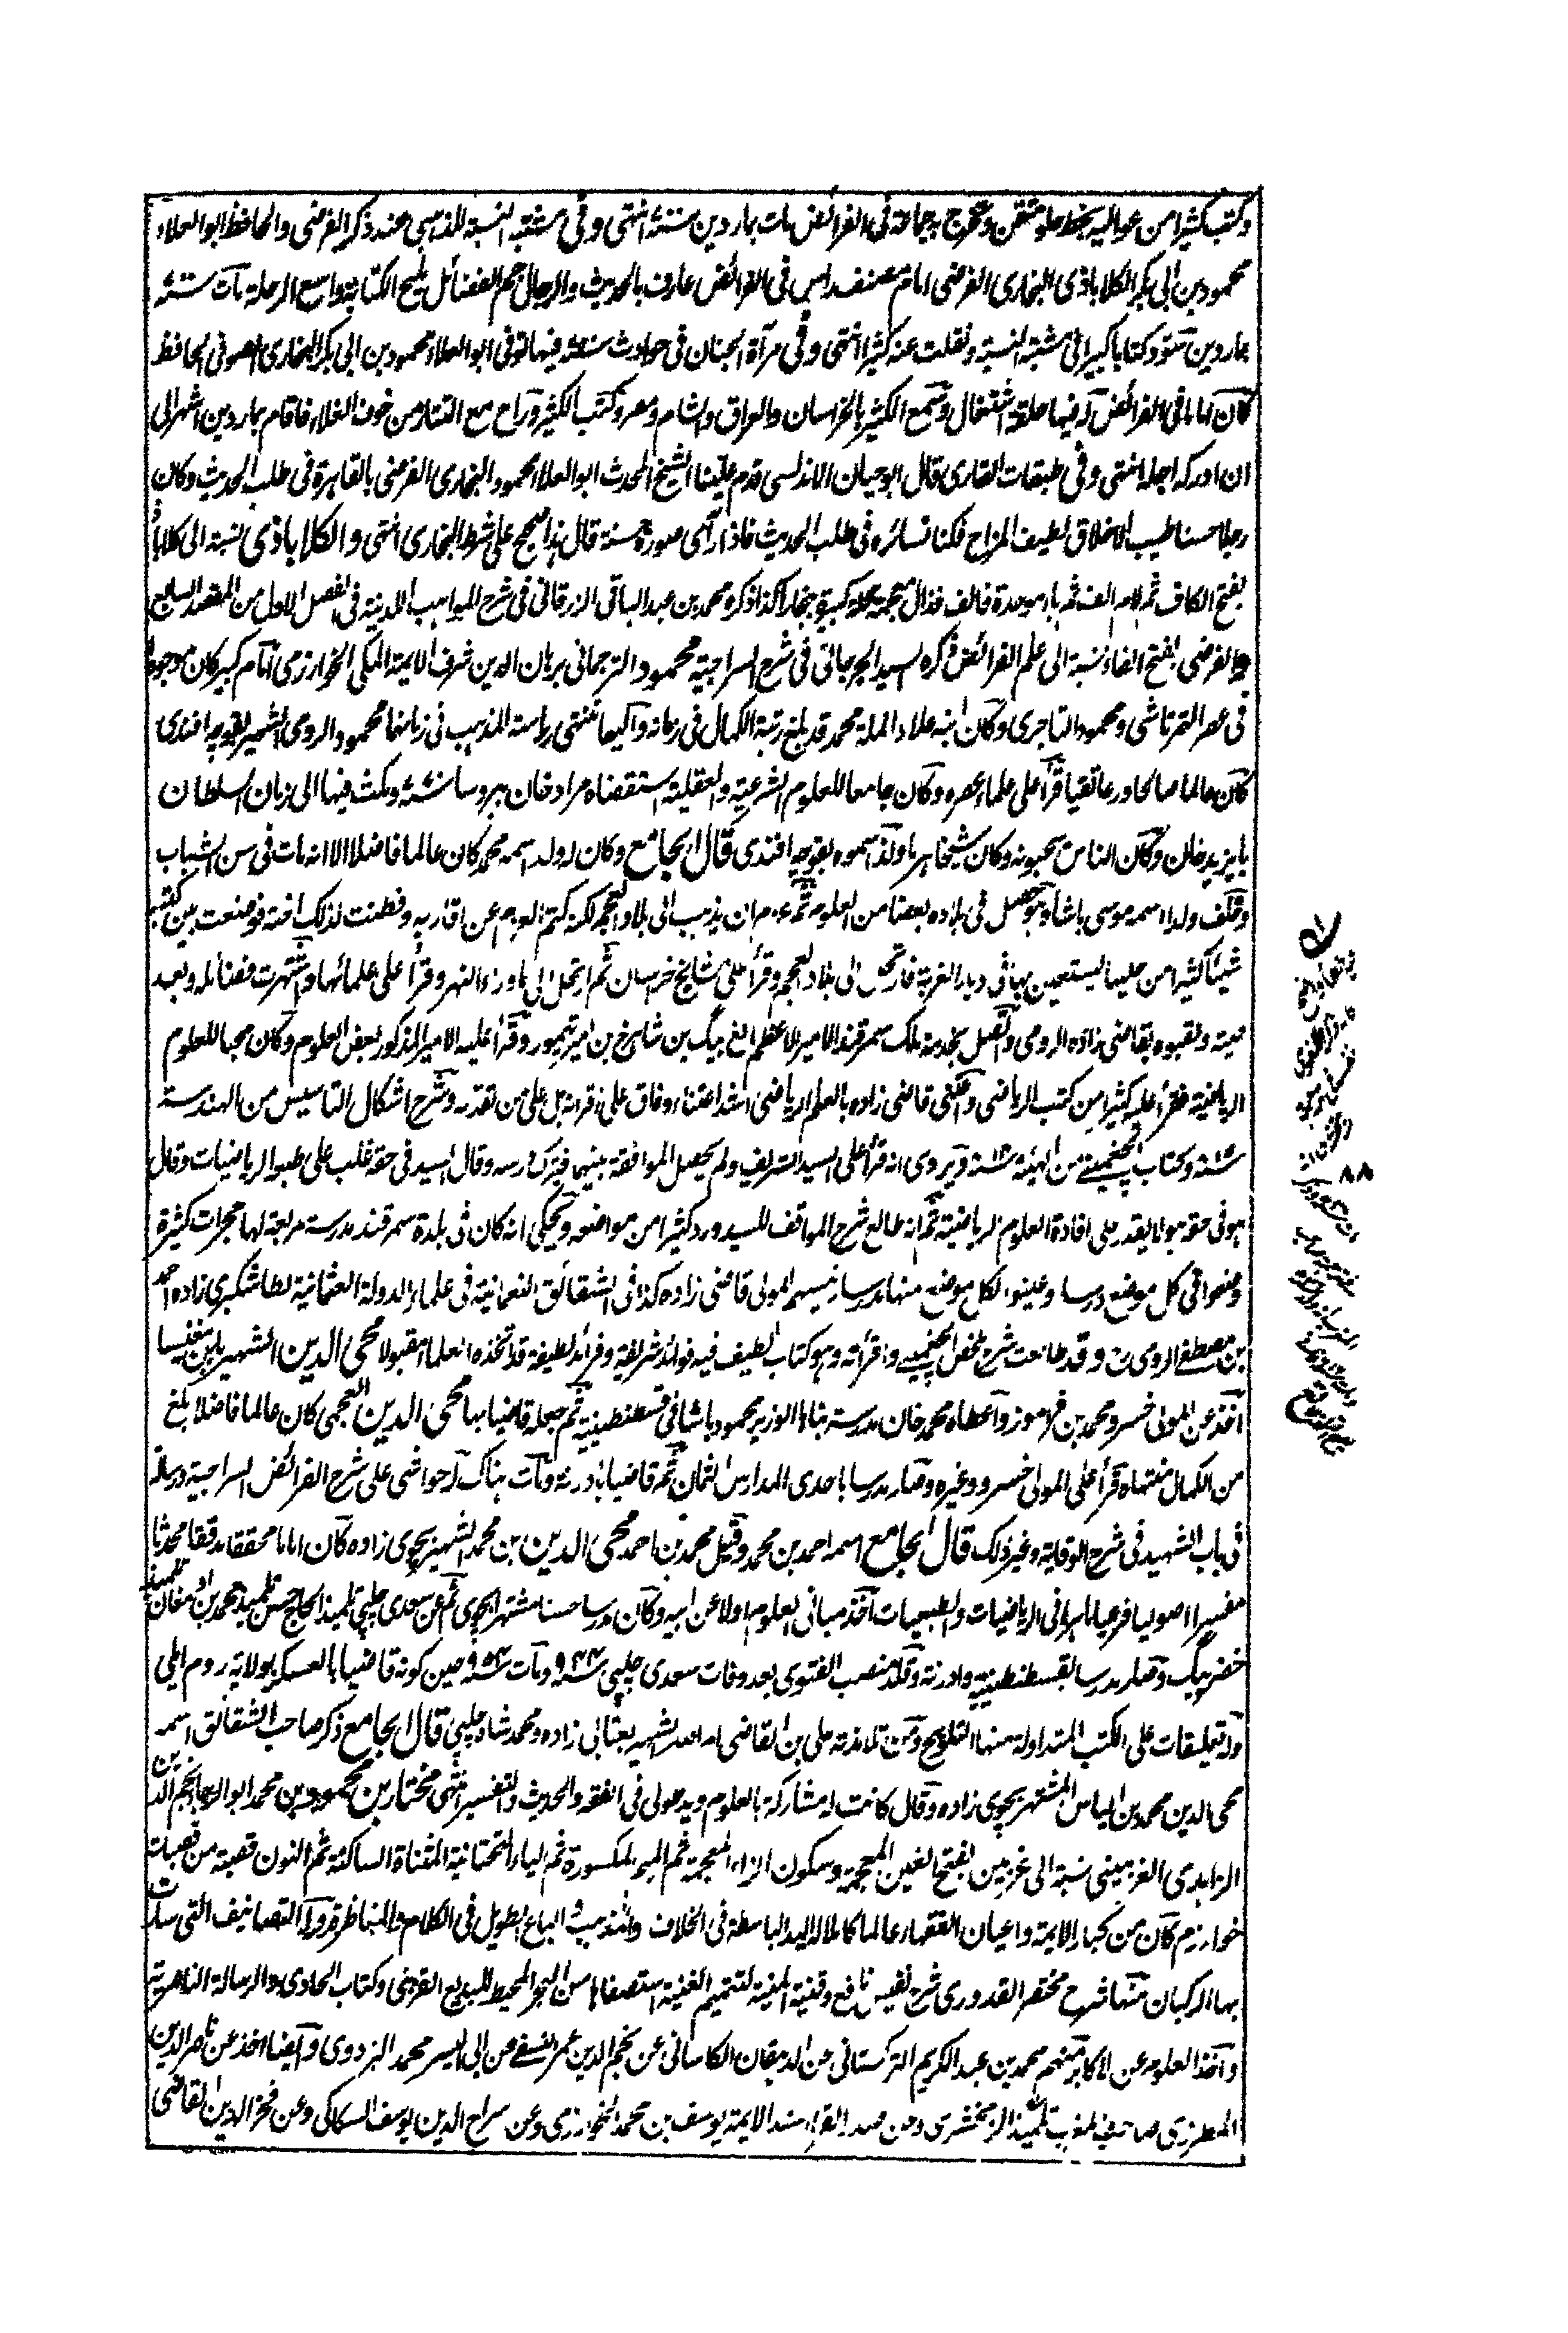 وكتب كثيرا من عواليه بخط حلو متقن وتخرج به جماعة في الفرائض مات بماردين سنة انتهى وفي مشتبه النسبة للذهبي عند ذكر الفرضي والحافظ ابو العلاء
محمود بن ابي بكر الكلاباذي البخاري الفرضي امام مصنف راس في الفرائض عارف بالحديث والرجال جم الفضائل مليح الكتابة واسع الرحلة مات سنة
بماردين سود كتابا كبيرا في مشتبه النسبة ونقلت عنه كثيرا انتهى وفي مرآة الجنان في حوادث سنة فيها توفى ابو العلاء محمود بن ابي بكر البخاري الصوفي الحافظ
كان اماما في الفرائض له فيها حلقة اشتغال وسمع الكثير بالخراسان والعراق والشام ومصر وكتب الكثير وراح مع التتار من خوف الغلاء فاقام بماردين اشهر الى
ان ادركه اجله انتهى وفي طبقات القاري قال ابو حيان الاندلسي قدم علينا الشيخ المحدث ابو العلاء محمود البخاري الفرضي بالقاهرة في طلب الحديث وكان
رجلا حسنا طيب الاخلاق لطيف المزاح فكنا نسائره في طلب الحديث فاذا رأى صورة حسنة قال هذا صحيح على شرط البخاري انتهى والكلاباذي نسبة الى كلاباذ
بفتح الكاف ثم لام الف ثم باء موحدة فالف فذال معجمة محلة كبيرة ببخارا كذا ذكره محمد بن عبد الباقي الزرقاني في شرح المواهب اللدنية في الفصل الاول من المقصد السابع
والفرضي بفتح الفاء نسبة الى علم الفرائض ذكره السيد الجرجاني في شرح السراجية محمود الترجماني برهان الدين شرف الايمة المكي الخوارزمي امام كبير كان موجودا
في عصر التمرتاشي ومحمود التاجري وكان ابنه علاء الملة محمد قد بلغ رتبة الكمال في زمانه واليهما تنتهي رياسة المذهب في زمانهما محمود الرومي الشهير بقوجه افندي
كان عالما صالحا ورعا تقيا قرأ على علماء عصره وكان جامعا للعلوم الشرعية والعقلية استقضاه مراد خان ببروسا سنة ومكث فيها الى زمان السلطان
بايزيد خان وكان الناس يحبونه وكان شيخا هرما ولذا سموه بقوجه افندي قال الجامع وكان له ولد اسمه محمد كان عالما فاضلا الا انه مات في سن الشباب
وخلف ولدا اسمه موسى باشا وهو حصل في بلاده بعضا من العلوم ثم عزم ان يذهب الى بلاد العجم لكنه كتم العزم عن اقاربه وفطنت لذلك اخته فوضعت بين كتبه
شيئا كثيرا من حليها ليستعين بها في ديار الغربة فارتحل الى بلاد العجم وقرأ على مشايخ خراسان ثم ارتحل الى ما وراء النهر وقرأ على علمائها واشتهرت فضائله وبعد
صيته ولقبوه بقاضي زاده الرومي واتصل بخدمة ملك سمرقند الامير الاعظم الغ بيك بن شاهرخ بن امير تيمور وقرأ عليه الامير المذكور بعض العلوم وكان محبا للعلوم
الرياضية فقرأ عليه كثيرا من كتب الرياضي واعتنى قاضي زاده بالعلم الرياضي اشد اعتناء وفاق على اقرانه بل على من تقدمه وشرح اشكال التاسيس من الهندسة
سنة وكتاب الجغميني من الهيئة سنة ويروى انه قرأ على السيد الشريف ولم يحصل الموافقة بينهما فترك درسه وقال السيد في حقه غلب على طبعه الرياضيات وقال
هو في حقه هو لا يقدر على افادة العلوم الرياضية ثم انه طالع شرح المواقف للسيد ورد كثيرا من مواضعه ويحكى انه كان في بلدة سمرقند مدرسة مربعة لها حجرات كثيرة
وضعوا في كل موضع درسا وعينوا لكل موضع منها مدرسا رئيسهم المولى قاضي زاده كذا في الشقائق النعمانية في علماء الدولة العثمانية لطاشكبري زاده احمد
بن مصطفى الرومي قلت وقد طالعت شرح ملخص الجغميني واقرأته وهو كتاب لطيف فيه فوائد شريفة وفرائد لطيفة قد اتخذه العلماء مقبولا محي الدين الشهير بابن مغنيسا
اخذ عن المولى خسرو محمد بن فرموز واعطاه محمد خان مدرسة بناها الوزير محمود باشا في قسطنطينية ثم جعله قاضيا بها محي الدين العجمي كان عالما فاضلا بلغ
من الكمال منتهاه قرأ على المولى خسرو وغيره وصار مدرسا باحدى المدارس الثمان ثم قاضيا بادرنه ومات هناك له حواشي على شرح الفرائض السراجية ورسالة
في باب الشهيد في شرح الوقاية وغير ذلك قال الجامع اسمه احمد بن محمد وقيل محمد بن احمد محي الدين بن محمد الشهير بجوي زاده كان اماما محققا مدققا محدثا
مفسرا اصوليا فرعيا ماهرا في الرياضيات والطبيعيات اخذ مباني العلوم اولا عن ابيه وكان مدرسا حسنا مشتهرا بجوي ثم عن سعدي چلپي تلميذ الحاج حسن تلميذ محمد بن ادمغان تلميذ
خضر بيك وصار مدرسا بقسطنطينية وادرنة وقلد منصب الفتوى بعد وفات سعدي چلپي سنة ومات سنة ٩٥٤ حين كونه قاضيا بالعسكر بولاية روم ايلي
وله تعليقات على الكتب المتداولة منها التلويح ومن تلامذته علي بن القاضي امر الله الشهير بقنالي زاده ومحمد شاه چلپي قال الجامع ذكر صاحب الشقائق اسمه
محي الدين محمد بن الياس المشتهر بجوي زاده وقال كانت له مشاركة بالعلوم ويد طولى في الفقه والحديث والتفسير انتهى مختار بن محمود بن محمد ابو الرجا نجم الدين
الزاهدي الغزميني نسبة الى غزمين بفتح الغين المعجمة وسكون الزاء المعجمة ثم الميم المكسورة ثم الياء التحتانية المثناة الساكنة ثم النون قصبة من قصبات
خوارزم كان من كبار الايمة واعيان الفقهاء عالما كاملا له اليد الباسطة في الخلاف والمذهب والباع الطويل في الكلام والمناظرة وله التصانيف التي سارت
بها الركبان منها شرح مختصر القدوري شرح نفيس نافع وقنية المنية لتتميم الغنية استصفاها من البحر المحيط للبديع القزبني وكتاب الحاوي والرسالة الناصرية
واخذ العلوم عن الاكابر منهم محمد بن عبد الكريم التركستاني عن الدهقان الكاساني عن نجم الدين عمر النسفي عن ابي اليسر محمد البزدوي وايضا اخذ عن ناصر الدين
المطرزي صاحب المغرب تلميذ الزمخشري وعن صدر القراء سند الايمة يوسف بن محمد الخوارزمي وعن سراج الدين يوسف السكاكي وعن فخر الدين القاضي
٨٨